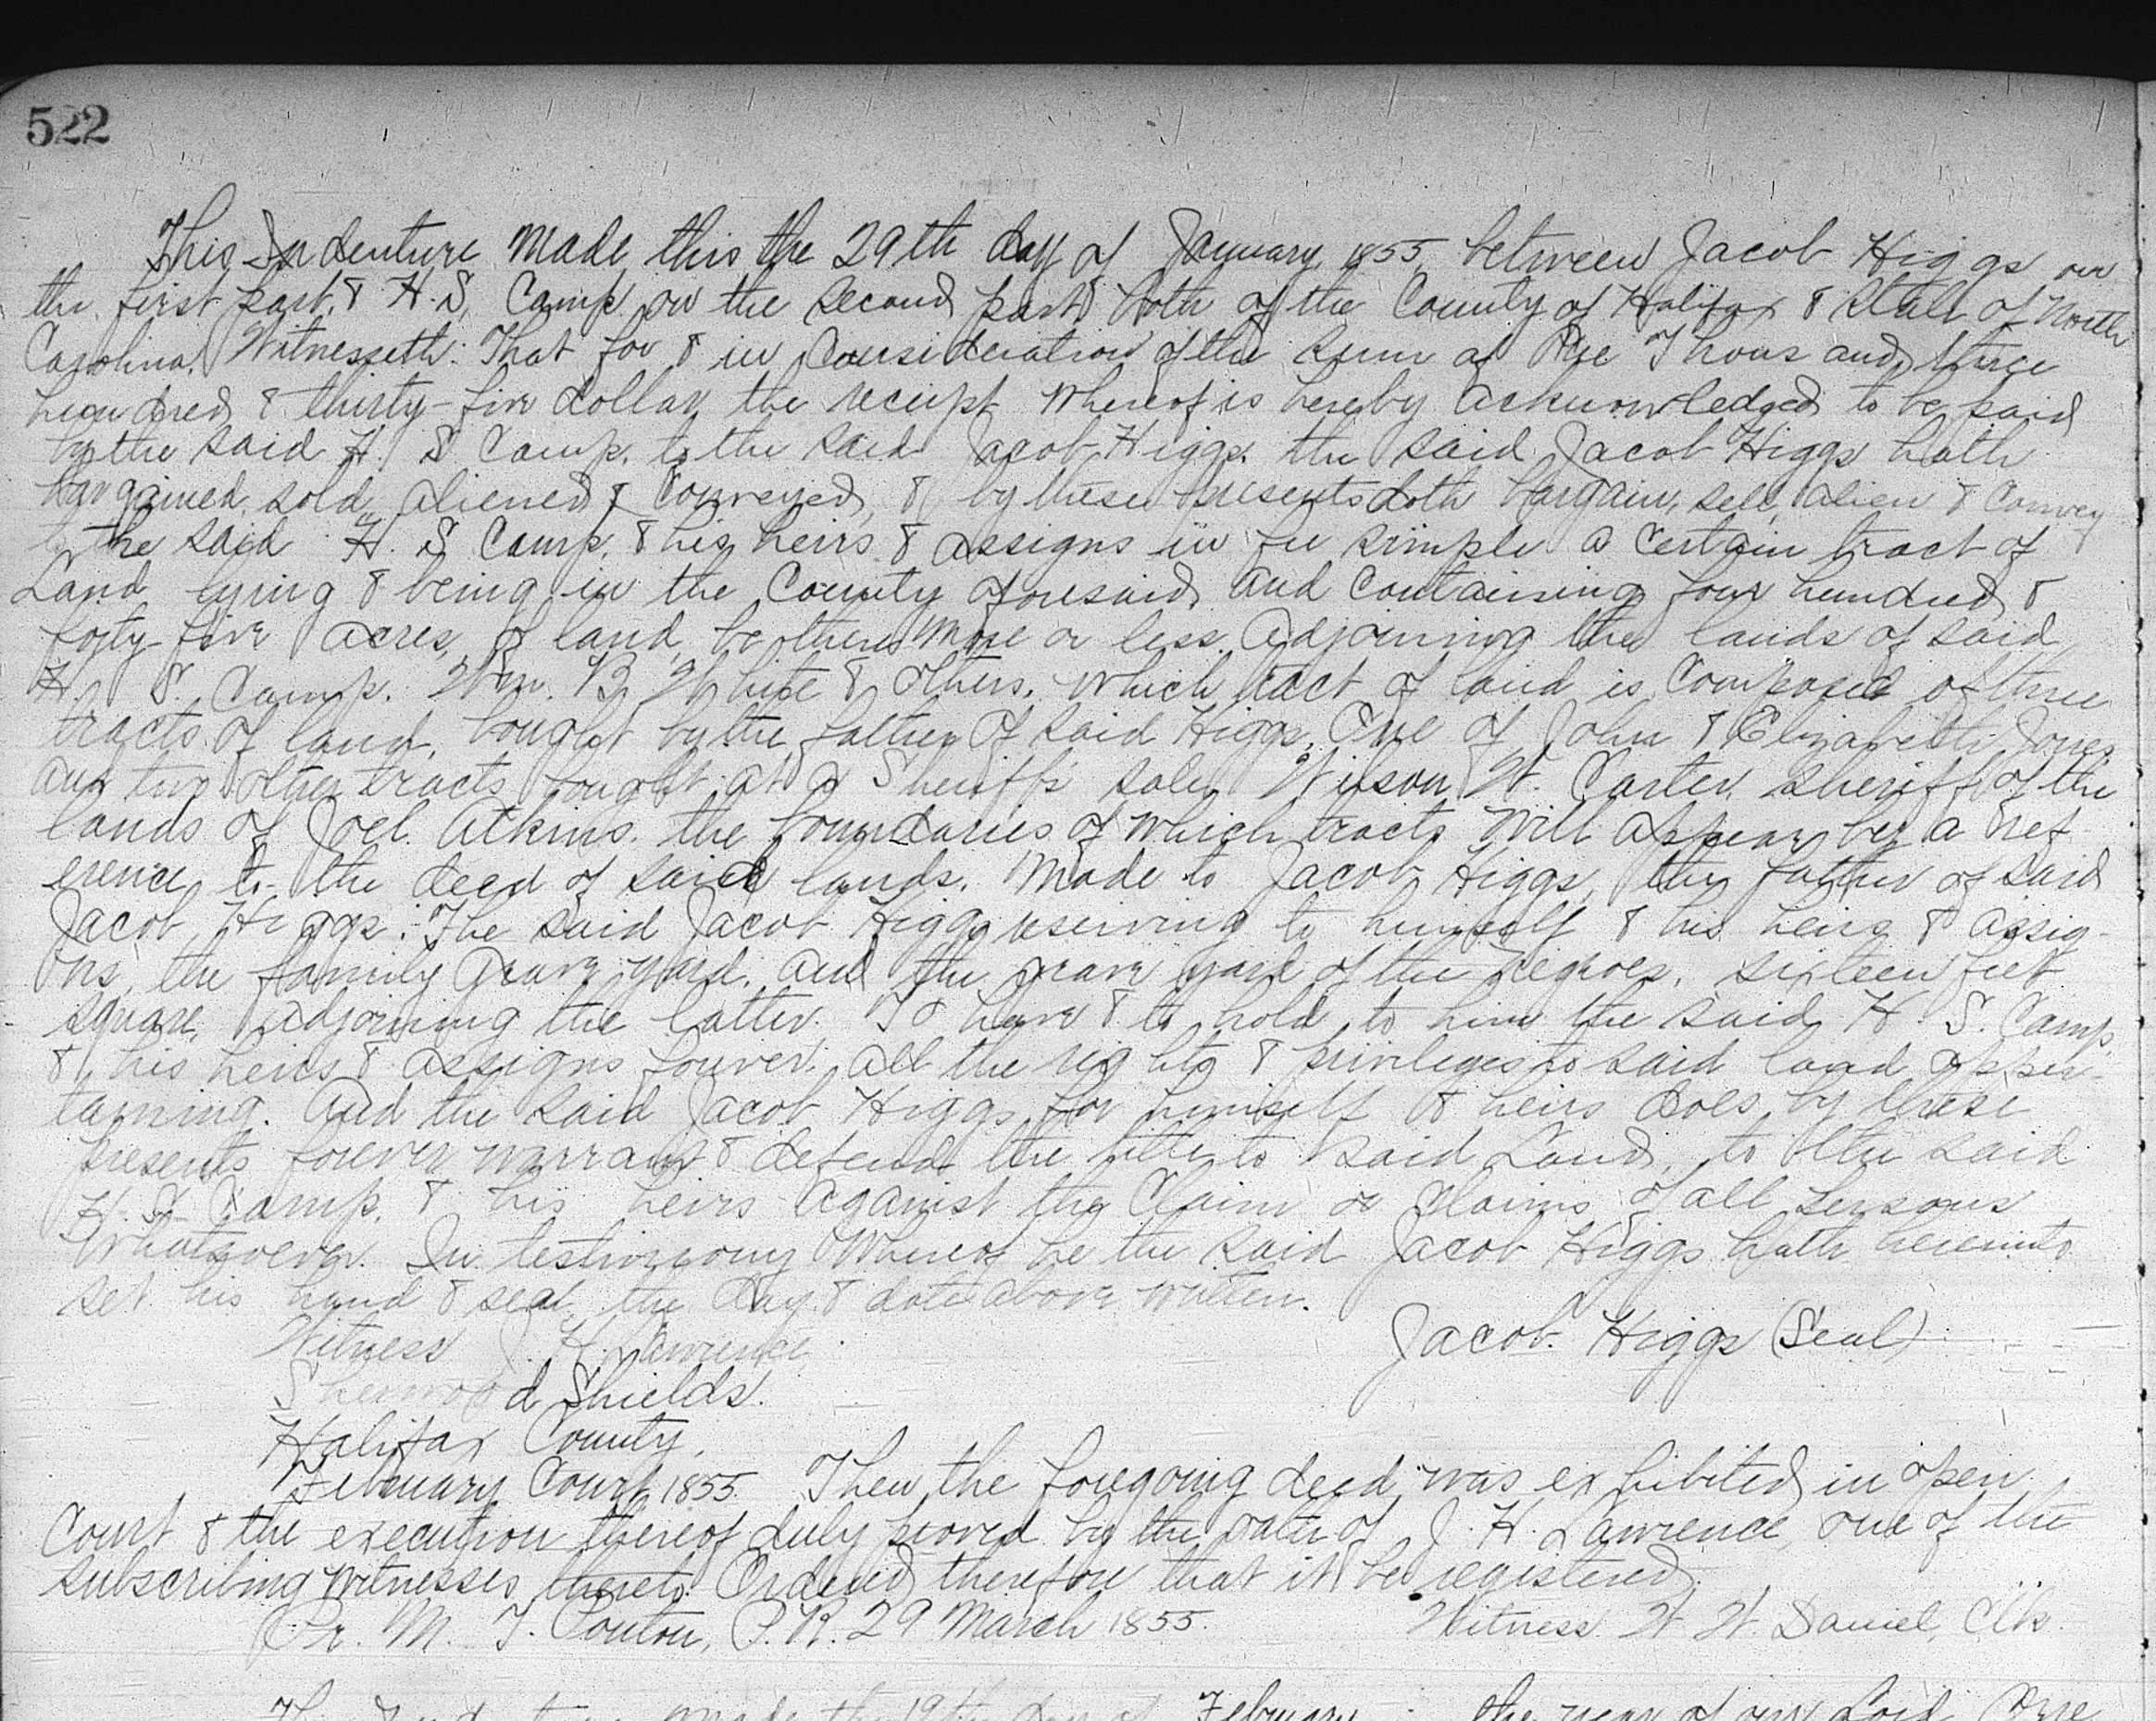 522
This Indenture made this the 29th day of January 1855, between Jacob Higgs on
the first part, & H. S. Camp on the second part both of the County of Halifax & State of North
Carolina, Witnesseth: That for & in Consideration of the sum of One Thousand three
hundred & thirty-five dollar, the receipt whereof is hereby acknowledged to be paid
by the said H. S Camp. to the said Jacob Higgs. the said Jacob Higgs hath
bargained, sold, aliened & Conveyed, & by these presents doth bargain, sell, alien & Convey
to the said H. S Camp. & his heirs & assigns in fee simple a certain tract of
Land lying & being in the County aforesaid, and containing four hundred &
forty-five acres, of land, be there more or less. Adjoining the lands of said
H. S. Camp. Wm. B. White & others. which tract of land is composed of three
tracts of land, bought by the father of said Higgs, One of John & Elizabeth Jones
and two other tracts bought at a Sheriff's sale, Wilson W. Carter sheriff of the
lands of Joel Atkins. the boundaries of which tracts will appear by a ref-
erence to the deed of said lands. Made to Jacob Higgs, the father of said
Jacob Higgs. The said Jacob Higgs reserving to himself & his heirs & assig-
ns, the family grave yard, and the grave yard of the negroes, sixteen feet
square, adjoining the latter. To have & to hold to him the said H. S. Camp.
& his heirs & assigns forever. all the rights & privileges to said land apper-
taining. And the said Jacob Higgs for himself & heirs does by these
presents forever warrant & defend the title to said Land, to the said
H. S Camp. & his heirs against the Claim or Claims of all persons
whatsoever. In testimony whereof he the said Jacob Higgs hath hereunto
set his hand & seal, the day & date above written.
Witness J. H. Lawrence. Jacob Higgs (Seal)
Sherwood Shields.
Halifax County.
February Court 1855 Then the foregoing deed was exhibited in open
Court & the execution thereof duly proved by the oath of J. H. Lawrence, one of the
subscribing witnesses thereto. Ordered therefore that it be registered.
Pr. M. T. Ponton, P.R. 29 March 1855. Witness W. W. Daniel, Clk.
This Indenture made the 19th day of February the year of our Lord One